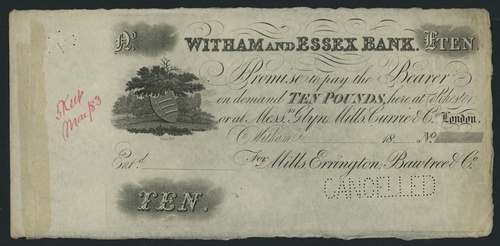 No. WITHAM AND ESSEX BANK. £TEN.
Promise to pay the Bearer
on demand TEN POUNDS, here at
or at Messrs. Glyn, Mills, Currie & Co. London.
Witham 18 No.
Entd.
For Mills Errington, Bawtree & Co.
CANCELLED
TEN.
Mar/83